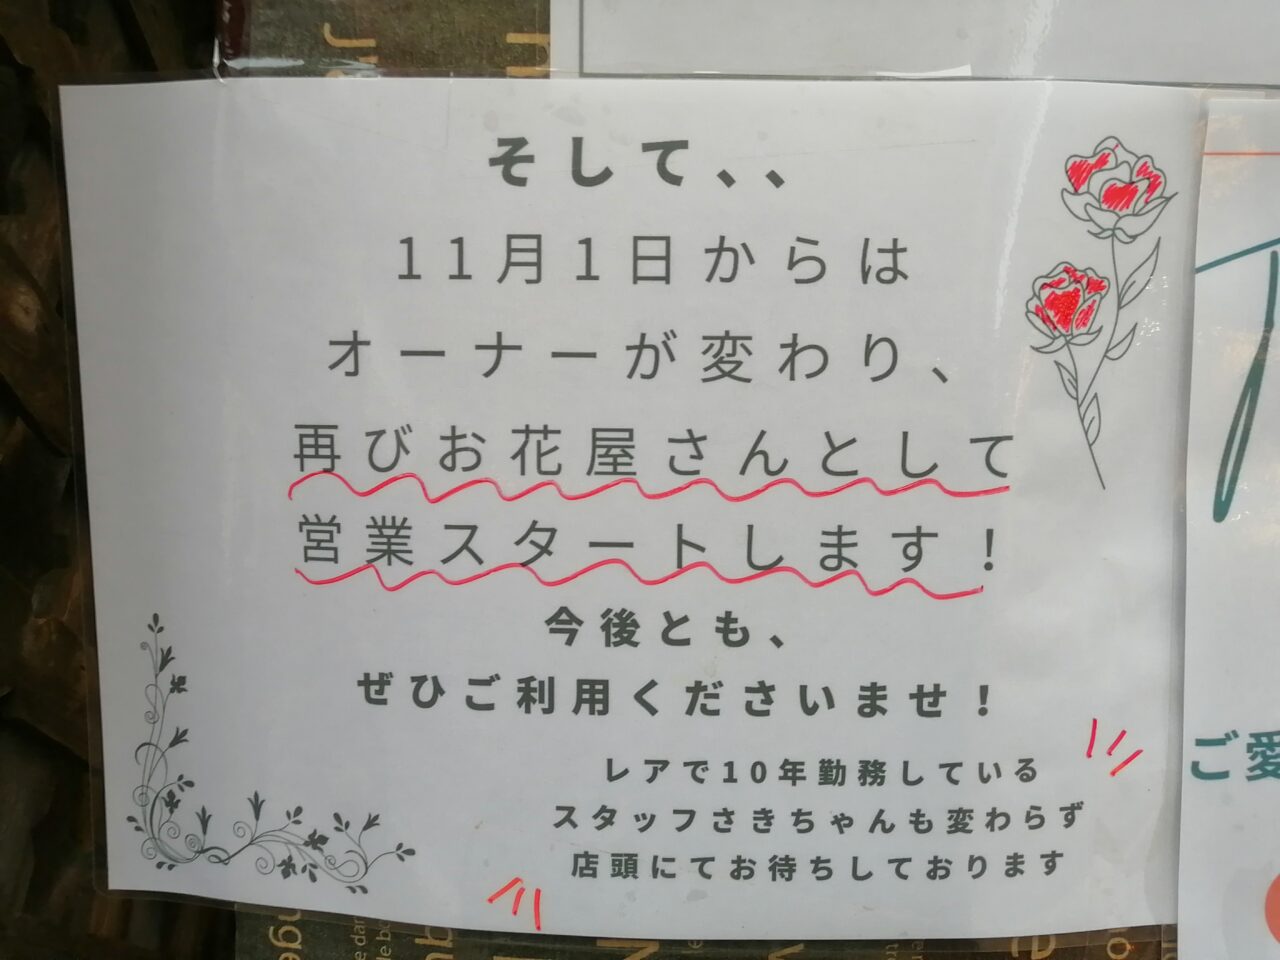 そして、、
11月1日からは
オーナーが変わり、
再びお花屋さんとして
営業スタートします！
今後とも、
ぜひご利用くださいませ！
レアで10年勤務している
スタッフさきちゃんも変わらず
店頭にてお待ちしております
ご愛